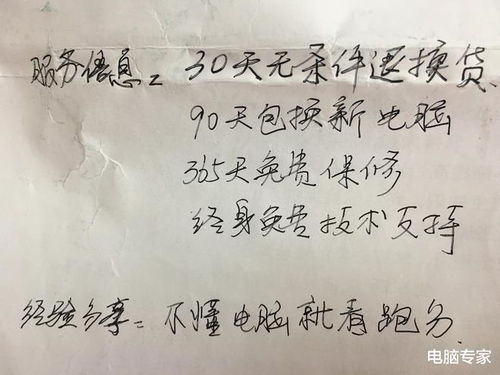 服务信息: 30天无条件退换货.
90天包换新电脑
365天免费保修
终身免费技术支持
经验分享: 不懂电脑就看跑分.
电脑专家